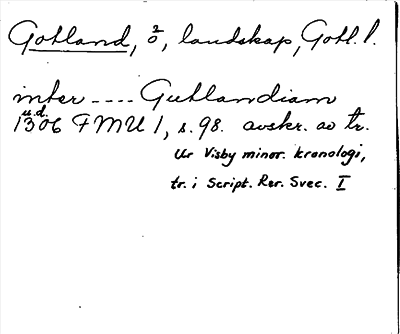 Gotland, 2/0, landskap, Gotl. l.
inter ---- Gutlandiam
u.d.
1306 FMU 1, s. 98. avskr. av tr.
Ur Visby minor. kronologi,
tr. i Script. Rer. Svec. I